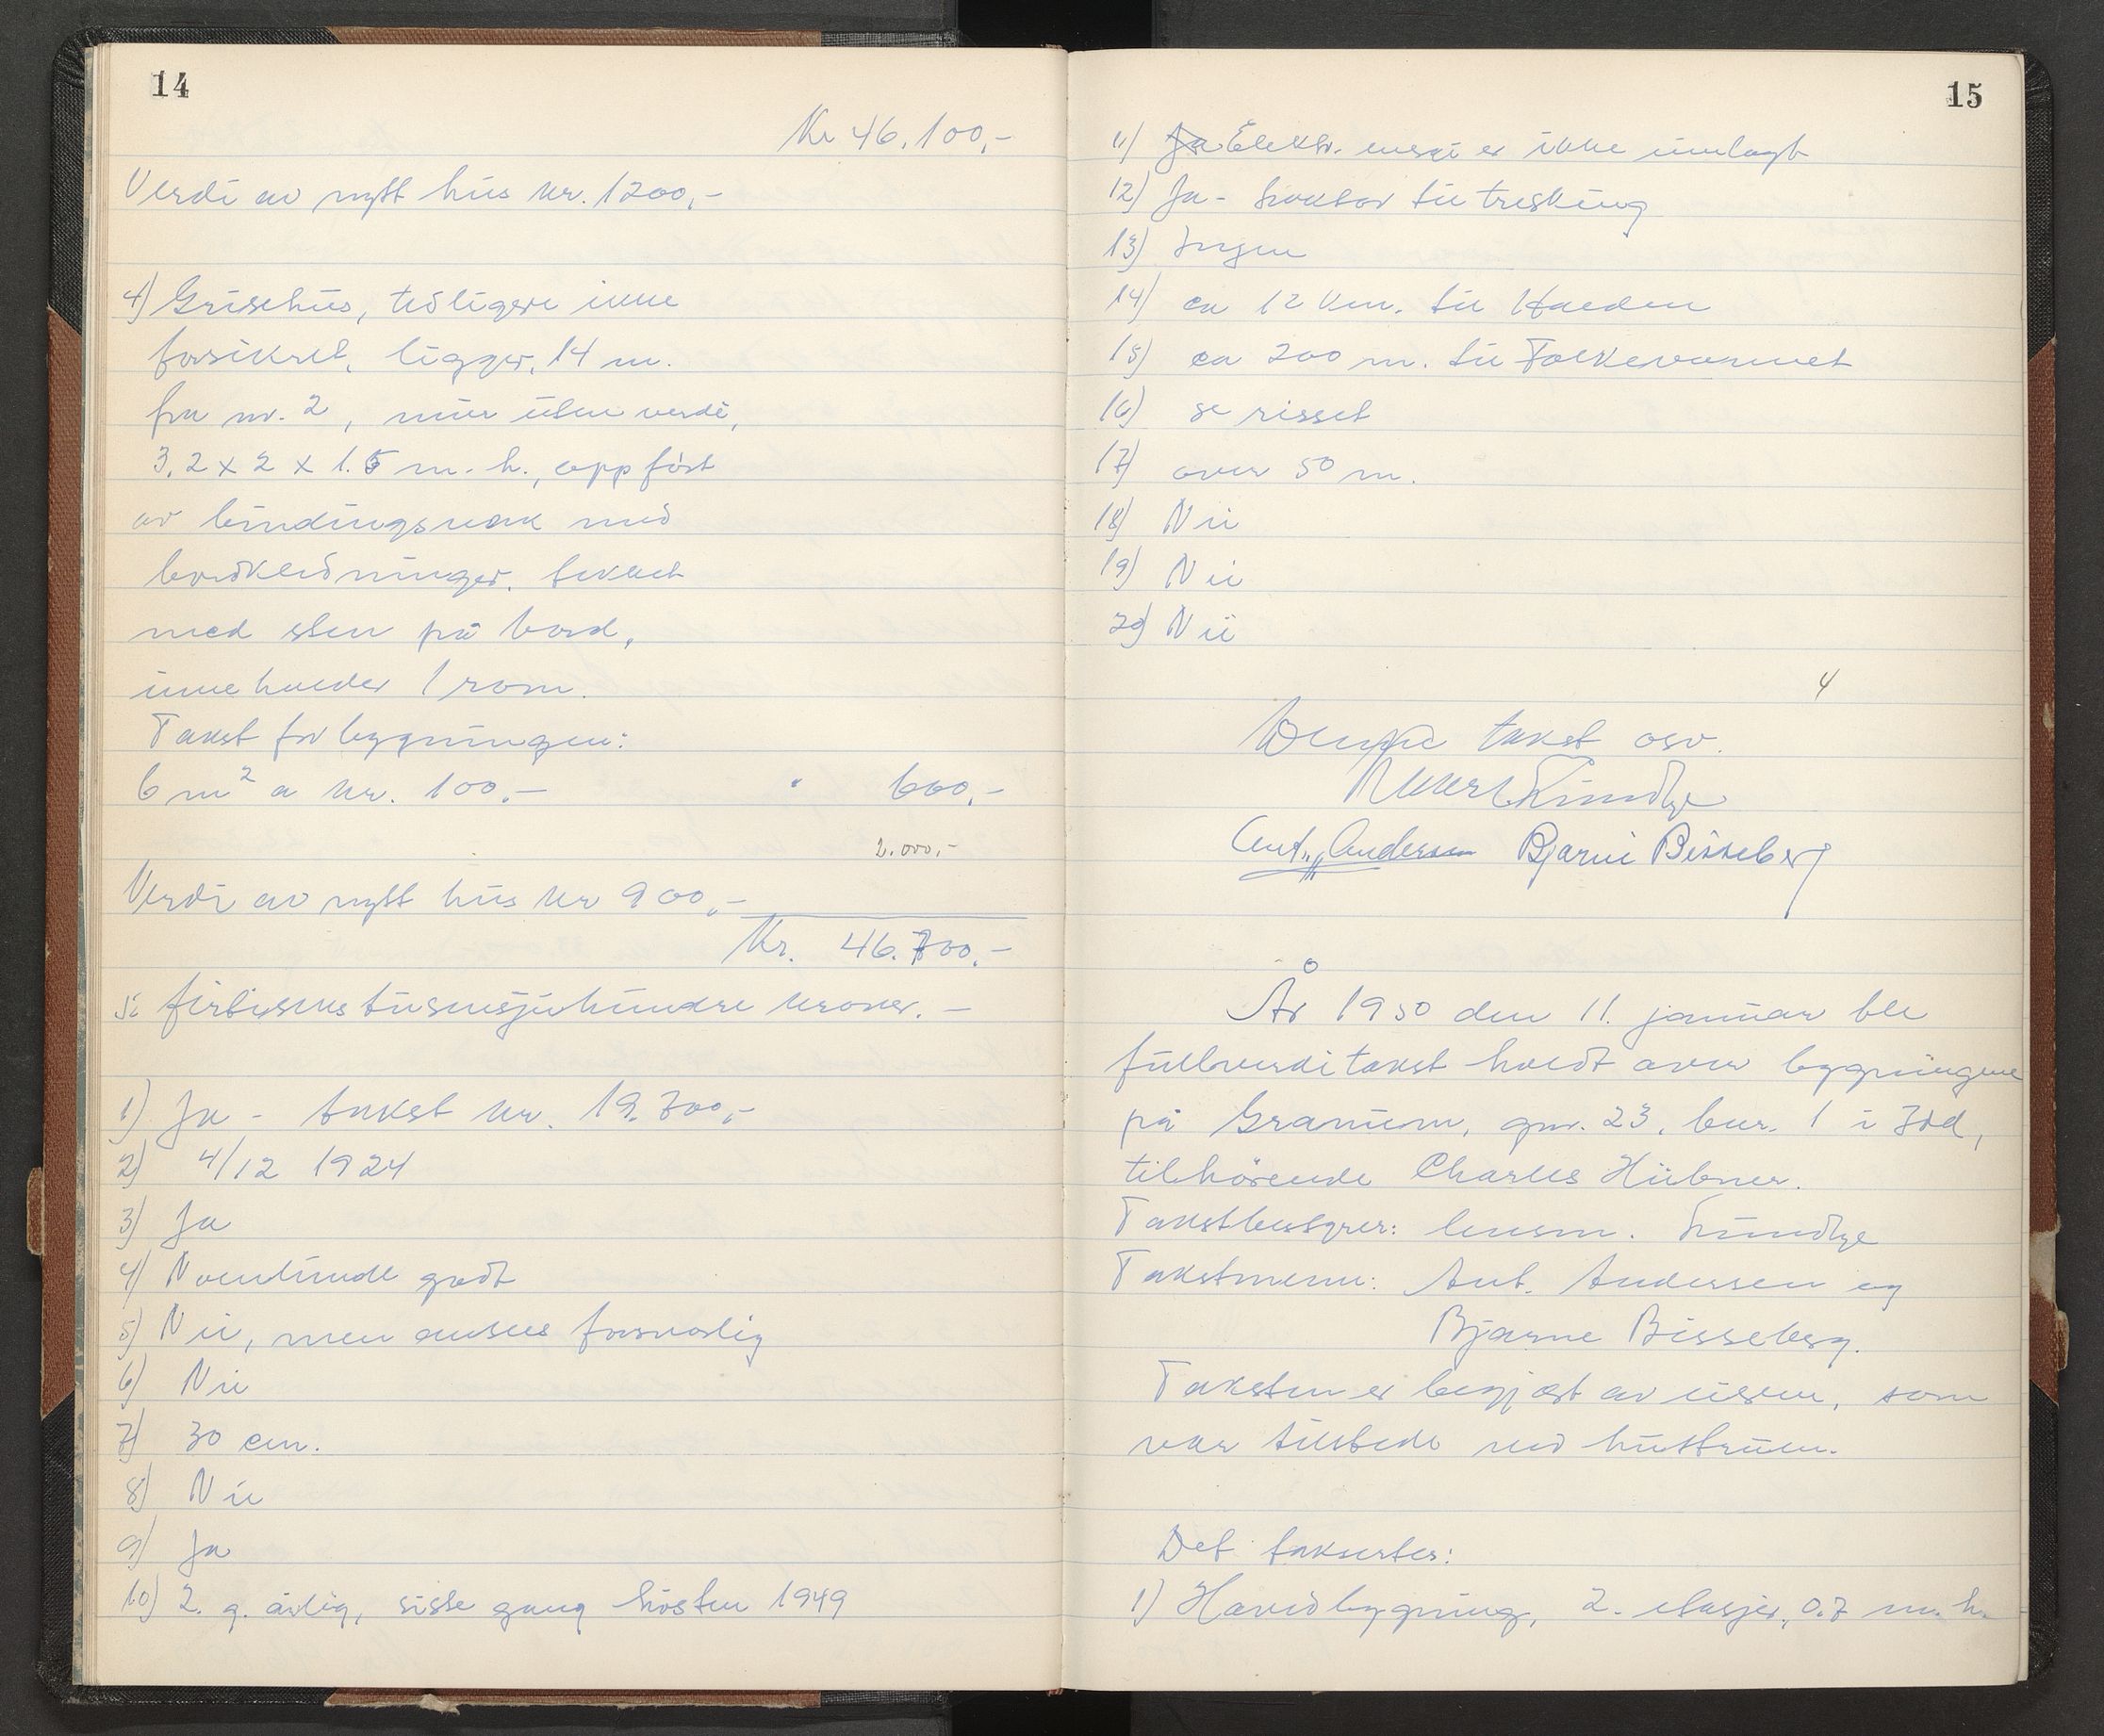 14
Kr 46.100,-
Verdi av nytt hus kr. 1200,-
4) Grisehus, tidligere ikke
forsikret, ligger 14 m.
fra nr. 2, mur uten verdi,
3.2 x 2 x 1.5 m. h., oppført
av bindingsverk med
bordkledninger, tekket
med sten på bord,
inneholder 1 rom.
Takst for bygningen:
6 m² a kr. 100,- " 600,-
2.000,-
Verdi av nytt hus kr 900,-
Kr. 46.700,-
firtisekstusensjuhundre kroner. -
1) Ja - takst kr. 19.700,-
2) 4/12 1924
3) Ja
4) Noenlunde godt
5) Nei, men ansees forsvarlig
6) Nei
7) 30 cm.
8) Nei
9) Ja
10) 2. g. årlig, siste gang høsten 1949
15
11) Ja Elektr. energi er ikke innlagt
12) Ja - traktor til tresking
13) Ingen
14) ca 12 km. til Halden
15) ca 200 m. til Folkevannet
16) se risset
17) over 50 m.
18) Nei
19) Nei
20) Nei
4
Denne takst osv.
Ant. Andersen Bjarne Bisseberg
År 1950 den 11. januar ble
fullverditakst holdt over bygningene
på Granum, gnr. 23, bnr. 1 i Idd,
tilhørende Charles Hübner.
Takstbestyrer: lensm. Lundby
Takstmenn: Ant. Andersen og
Bjarne Bisseberg.
Taksten er begjært av eieren, som
var tilstede ved hustruen.
Det taksertes:
1) Hovedbygning, 2. etasjer, 0.7 m. h.